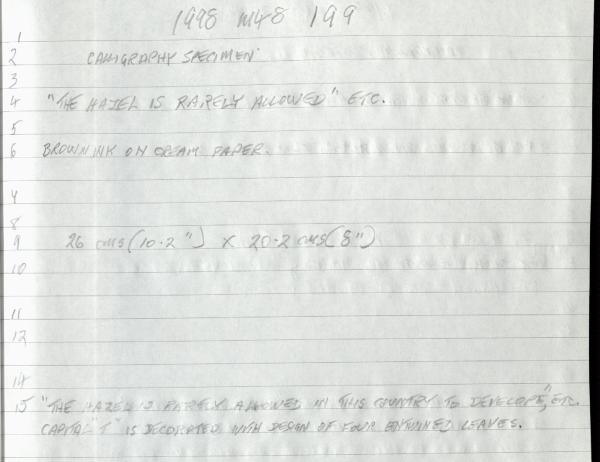 1998 M48 199
1
2 CALLIGRAPHY SPECIMEN
3
4 "THE HAZEL IS RARELY ALLOWED" ETC.
5
6 BROWN INK ON CREAM PAPER.
8
9 26 cms (10.2") X 20.2 cms (8")
10
11
12
14
15 "THE HAZEL IS RARELY ALLOWED IN THIS COUNTRY TO DEVELOPE", ETC.
CAPITAL "T" IS DECORATED WITH DESIGN OF FOUR ENTWINED LEAVES.